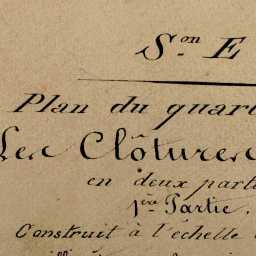 S.on E
Plan du quart
Les Clôtures
en deux parti
1ère Partie.
Construit à l'échelle